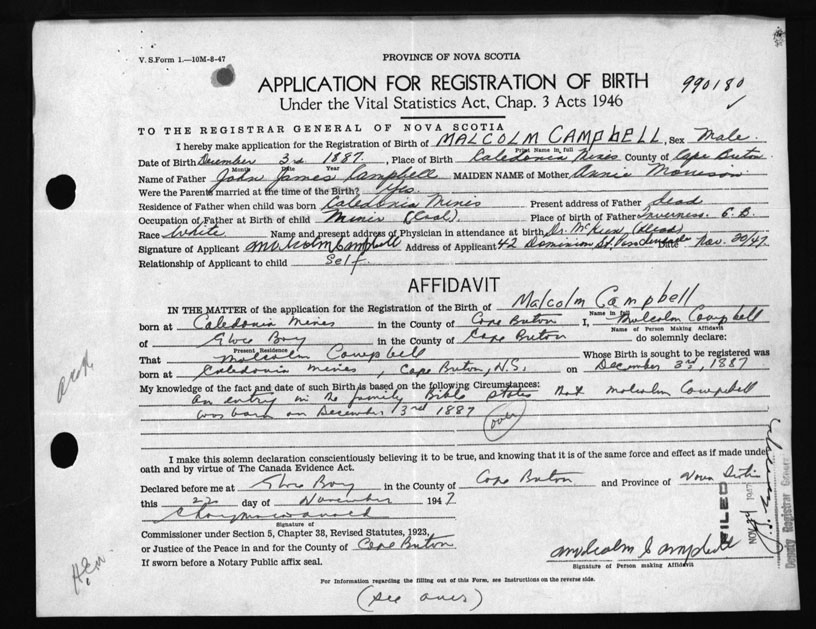 V. S. Form 1.—10M-8-47
PROVINCE OF NOVA SCOTIA
APPLICATION FOR REGISTRATION OF BIRTH
990180
Under the Vital Statistics Act, Chap. 3 Acts 1946
TO THE REGISTRAR GENERAL OF NOVA SCOTIA
I hereby make application for the Registration of Birth of MALCOLM CAMPBELL, Sex Male.
Print Name in full
Date of Birth December 3rd 1887. , Place of Birth Caledonia Mines County of Cape Breton
Month Date Year
Name of Father John James Campbell MAIDEN NAME of Mother Annie Morrison
Were the Parents married at the time of the Birth? Yes.
Residence of Father when child was born Caledonia Mines Present address of Father dead
Occupation of Father at Birth of child Miner (Coal). Place of birth of Father Inverness. C.B.
Race White Name and present address of Physician in attendance at birth Dr. McKeen (dead)
Signature of Applicant Malcolm Campbell Address of Applicant 42 Dominion St. Date Nov. 20/47.
Relationship of Applicant to child Self.
AFFIDAVIT
IN THE MATTER of the application for the Registration of the Birth of Malcolm Campbell
Name in full
born at Caledonia Mines in the County of Cape Breton I, Malcolm Campbell
Name of Person Making Affidavit
of Glace Bay in the County of Cape Breton do solemnly declare:
Present Residence
That Malcolm Campbell Whose Birth is sought to be registered was
born at Caledonia Mines, Cape Breton, N.S. on December 3rd, 1887
My knowledge of the fact and date of such Birth is based on the following Circumstances:
An entry in the family Bible states that Malcolm Campbell
was born on December 3rd 1887 (over)
I make this solemn declaration conscientiously believing it to be true, and knowing that it is of the same force and effect as if made under
oath and by virtue of The Canada Evidence Act.
Declared before me at Glace Bay in the County of Cape Breton and Province of Nova Scotia
this 22 day of November 1947
Signature of
Commissioner under Section 5, Chapter 38, Revised Statutes, 1923,
or Justice of the Peace in and for the County of Cape Breton
If sworn before a Notary Public affix seal.
Malcolm Campbell
Signature of Person making Affidavit
FILED
NOV 24 1947
Deputy Registrar General
For Information regarding the filling out of this Form, see Instructions on the reverse side.
(see over)